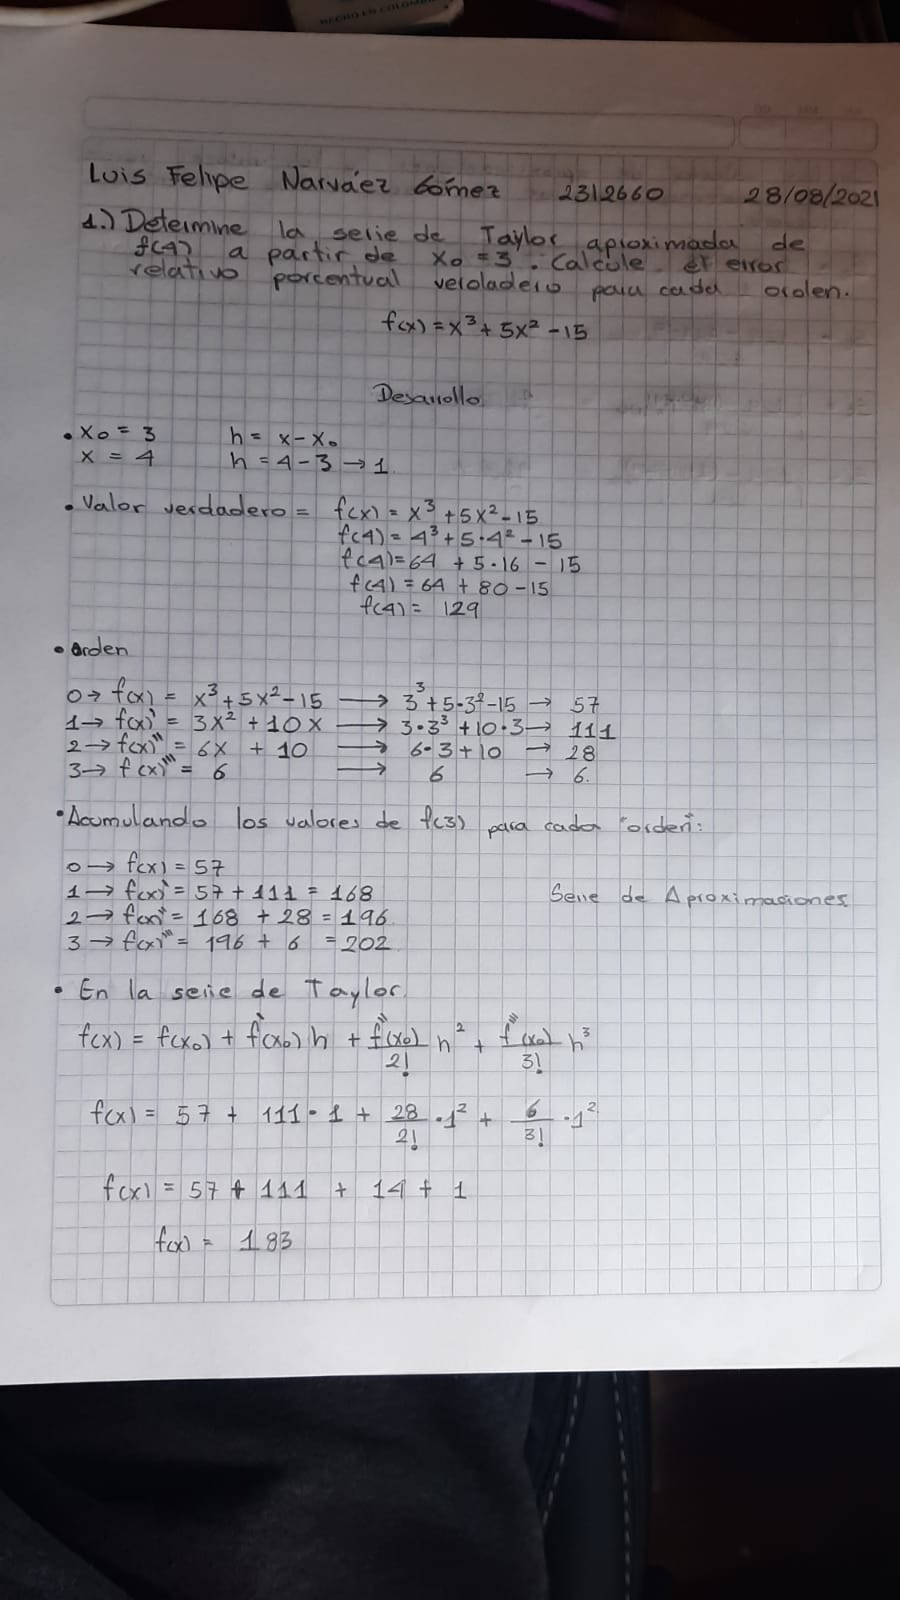 HECHO EN COLOMBIA
Luis Felipe Narváez Gómez 2312660 28/08/2021
1.) Determine la serie de Taylor aproximada de
f(4) a partir de x₀ = 3. Calcule el error
relativo porcentual verdadero para cada orden.
f(x) = x³ + 5x² - 15
Desarrollo
• x₀ = 3 h = x - x₀
x = 4 h = 4 - 3 → 1
• Valor verdadero = f(x) = x³ + 5x² - 15
f(4) = 4³ + 5·4² - 15
f(4) = 64 + 5·16 - 15
f(4) = 64 + 80 - 15
f(4) = 129
• Orden
0→ f(x) = x³ + 5x² - 15 → 3³ + 5·3² - 15 → 57
1→ f(x)' = 3x² + 10x → 3·3³ + 10·3 → 111
2→ f(x)'' = 6x + 10 → 6·3 + 10 → 28
3→ f(x)''' = 6 → 6 → 6.
• Acumulando los valores de f(3) para cada "orden":
0→ f(x) = 57
1→ f(x)' = 57 + 111 = 168 Serie de Aproximaciones
2→ f(x)'' = 168 + 28 = 196
3→ f(x)''' = 196 + 6 = 202
• En la serie de Taylor
f(x) = f(x₀) + f'(x₀) h + f''(x₀)/2! h² + f'''(x₀)/3! h³
f(x) = 57 + 111·1 + 28/2! ·1² + 6/3! ·1²
f(x) = 57 + 111 + 14 + 1
f(x) = 183